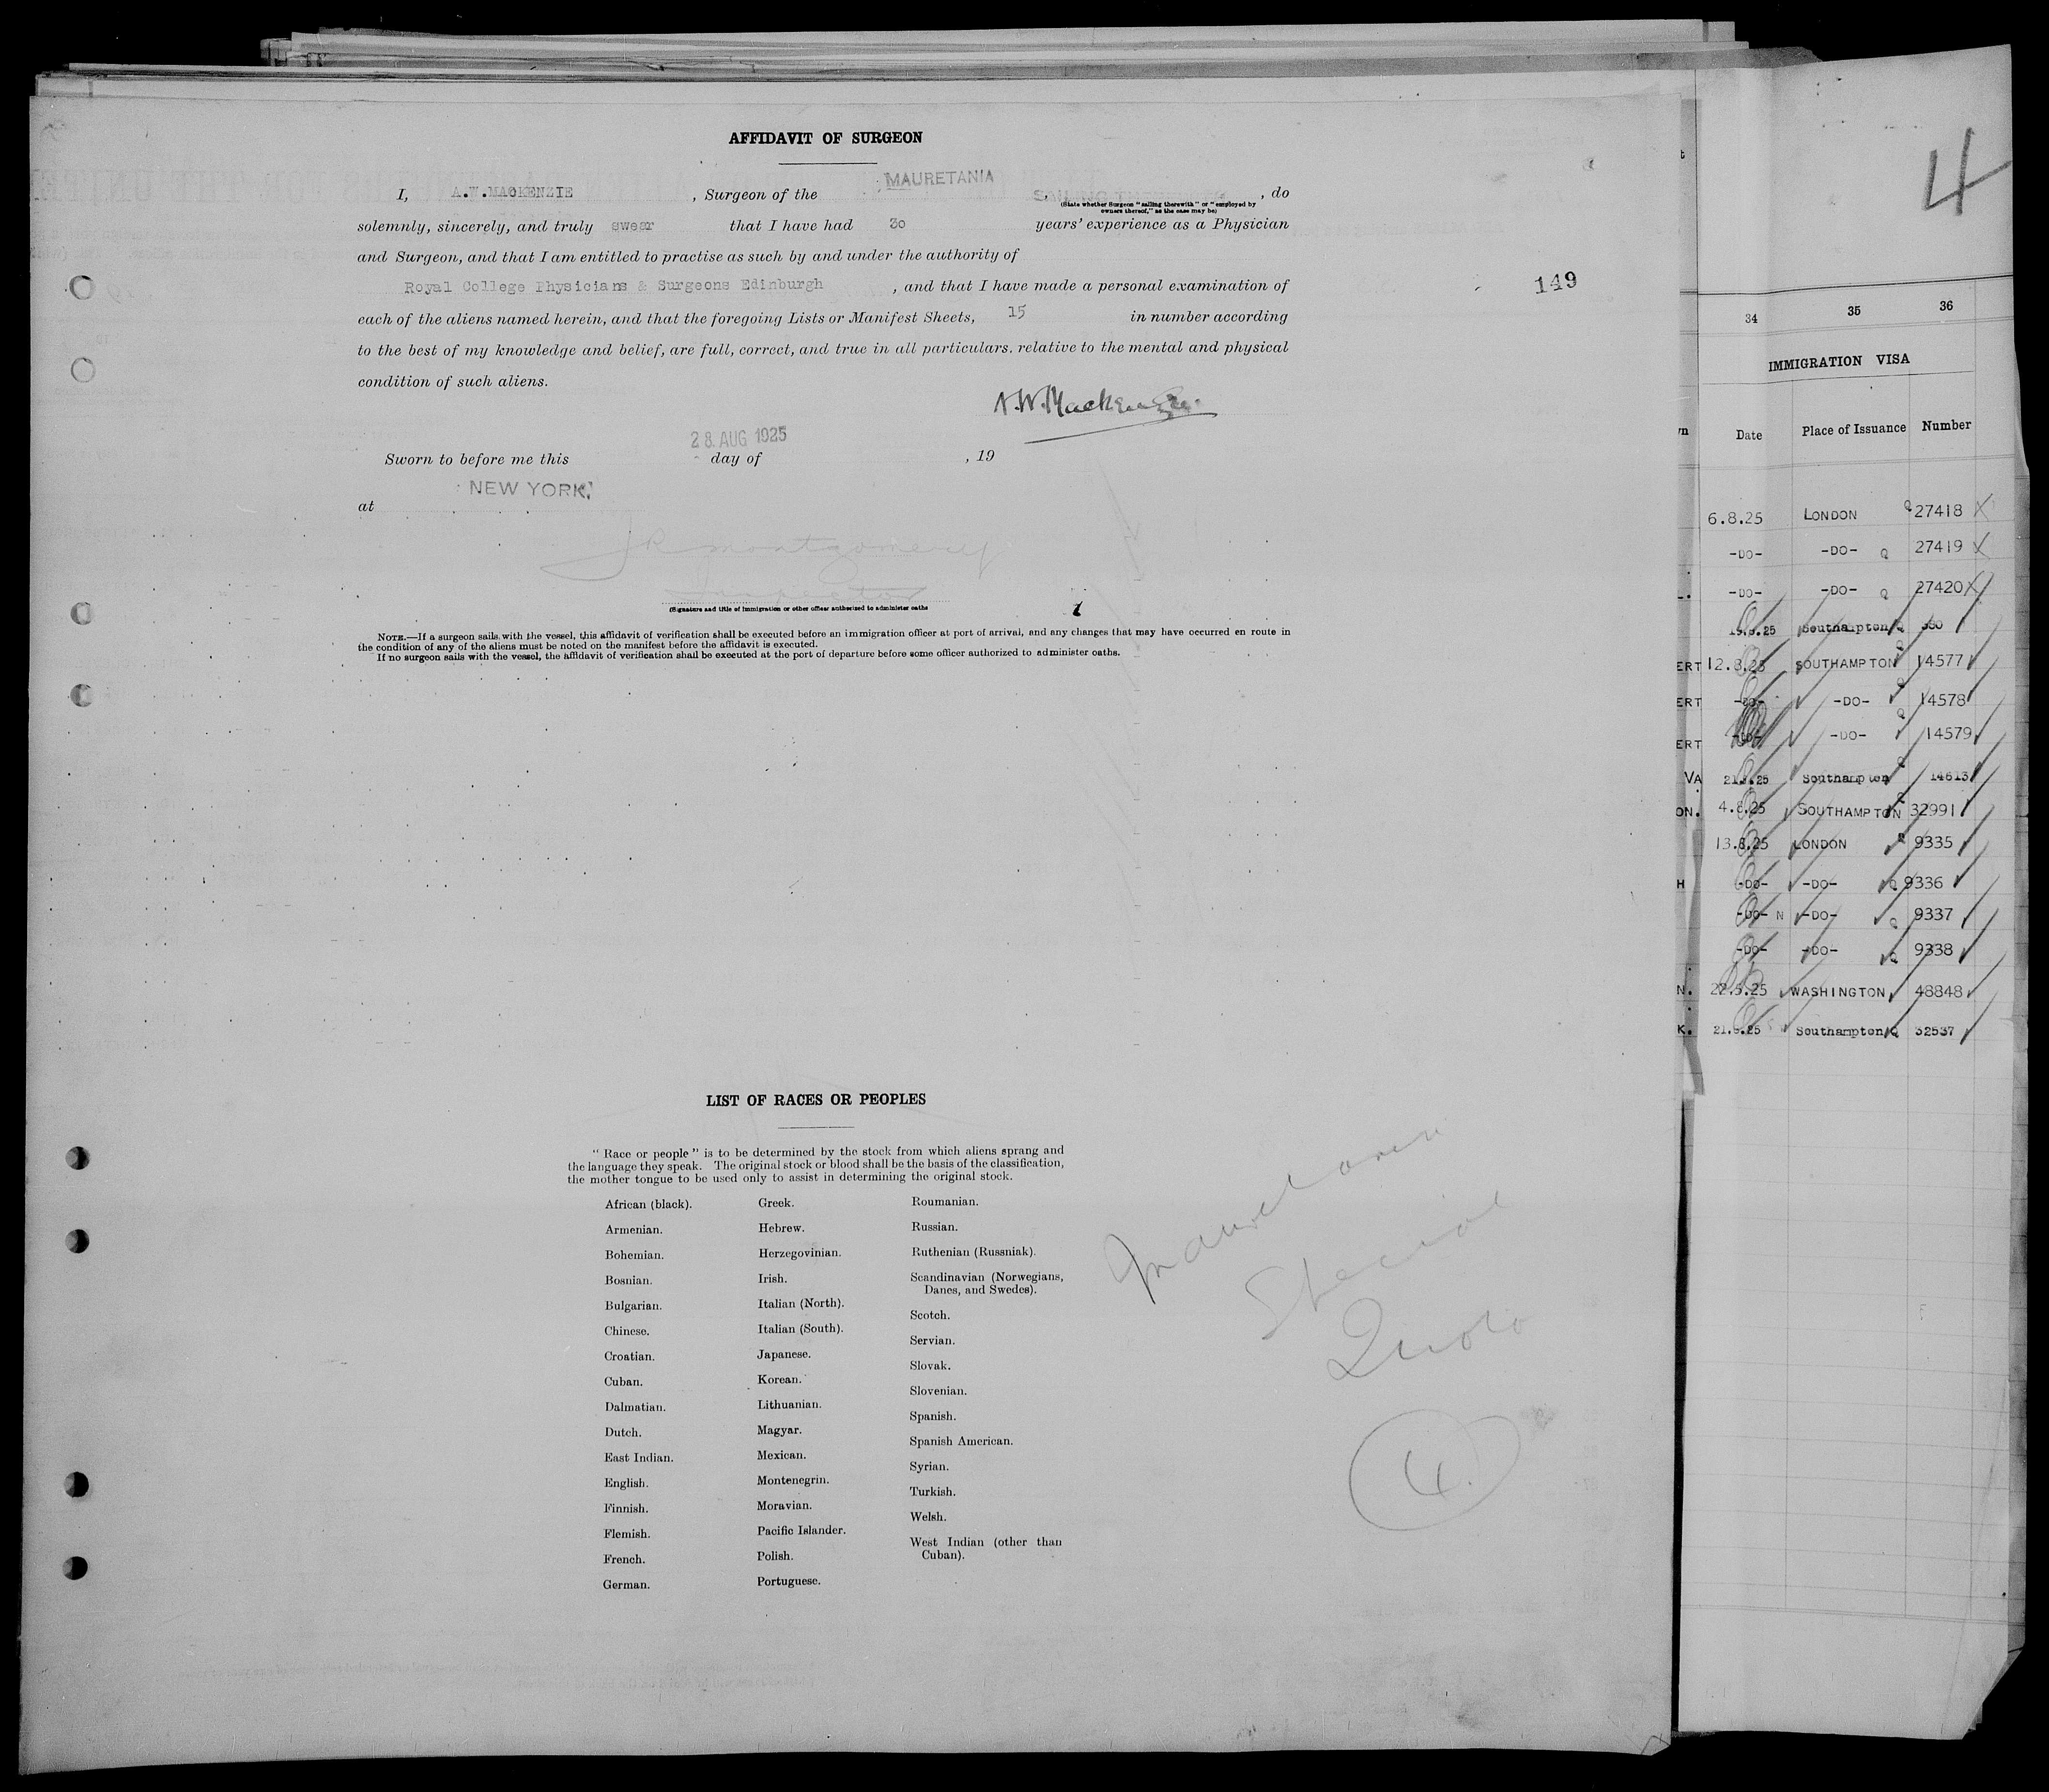 AFFIDAVIT OF SURGEON
I, A.W.MACKENZIE , Surgeon of the MAURETANIA , SAILING THEREWITH , do
(State whether Surgeon "sailing therewith" or "employed by
owners thereof," as the case may be)
solemnly, sincerely, and truly swear that I have had 30 years' experience as a Physician
and Surgeon, and that I am entitled to practise as such by and under the authority of
Royal College Physicians & Surgeons Edinburgh , and that I have made a personal examination of
each of the aliens named herein, and that the foregoing Lists or Manifest Sheets, 15 in number according
to the best of my knowledge and belief, are full, correct, and true in all particulars. relative to the mental and physical
condition of such aliens.
A.W.Mackenzie.
28. AUG 1925
Sworn to before me this day of , 19
at NEW YORK.
JR Montgomery
Inspector
(Signature and title of immigration or other officer authorized to administer oaths
NOTE.—If a surgeon sails with the vessel, this affidavit of verification shall be executed before an immigration officer at port of arrival, and any changes that may have occurred en route in
the condition of any of the aliens must be noted on the manifest before the affidavit is executed.
If no surgeon sails with the vessel, the affidavit of verification shall be executed at the port of departure before some officer authorized to administer oaths.
149
LIST OF RACES OR PEOPLES
" Race or people " is to be determined by the stock from which aliens sprang and
the language they speak. The original stock or blood shall be the basis of the classification,
the mother tongue to be used only to assist in determining the original stock.
African (black).
Armenian.
Bohemian.
Bosnian.
Bulgarian.
Chinese.
Croatian.
Cuban.
Dalmatian.
Dutch.
East Indian.
English.
Finnish.
Flemish.
French.
German.
Greek.
Hebrew.
Herzegovinian.
Irish.
Italian (North).
Italian (South).
Japanese.
Korean.
Lithuanian.
Magyar.
Mexican.
Montenegrin.
Moravian.
Pacific Islander.
Polish.
Portuguese.
Roumanian.
Russian.
Ruthenian (Russniak).
Scandinavian (Norwegians,
Danes, and Swedes).
Scotch.
Servian.
Slovak.
Slovenian.
Spanish.
Spanish American.
Syrian.
Turkish.
Welsh.
West Indian (other than
Cuban).
Mauretania
Special
Quota
4.
4
34 35 36
IMMIGRATION VISA
Date Place of Issuance Number
6.8.25 LONDON Q 27418
-DO- -DO- Q 27419
-DO- -DO- Q 27420
Southampton Q
ERT 12.8.25 SOUTHAMPTON Q 14577
ERT -DO- -DO- Q 14578
ERT -DO- -DO- Q 14579
VA 21.8.25 Southampton Q 14613
ON. 4.8.25 SOUTHAMPTON Q 32991
13.8.25 LONDON Q 9335
H -DO- -DO- Q 9336
-DO- N -DO- Q 9337
-DO- -DO- Q 9338
N. WASHINGTON 48848
K. 21.8.25 Southampton Q 32537